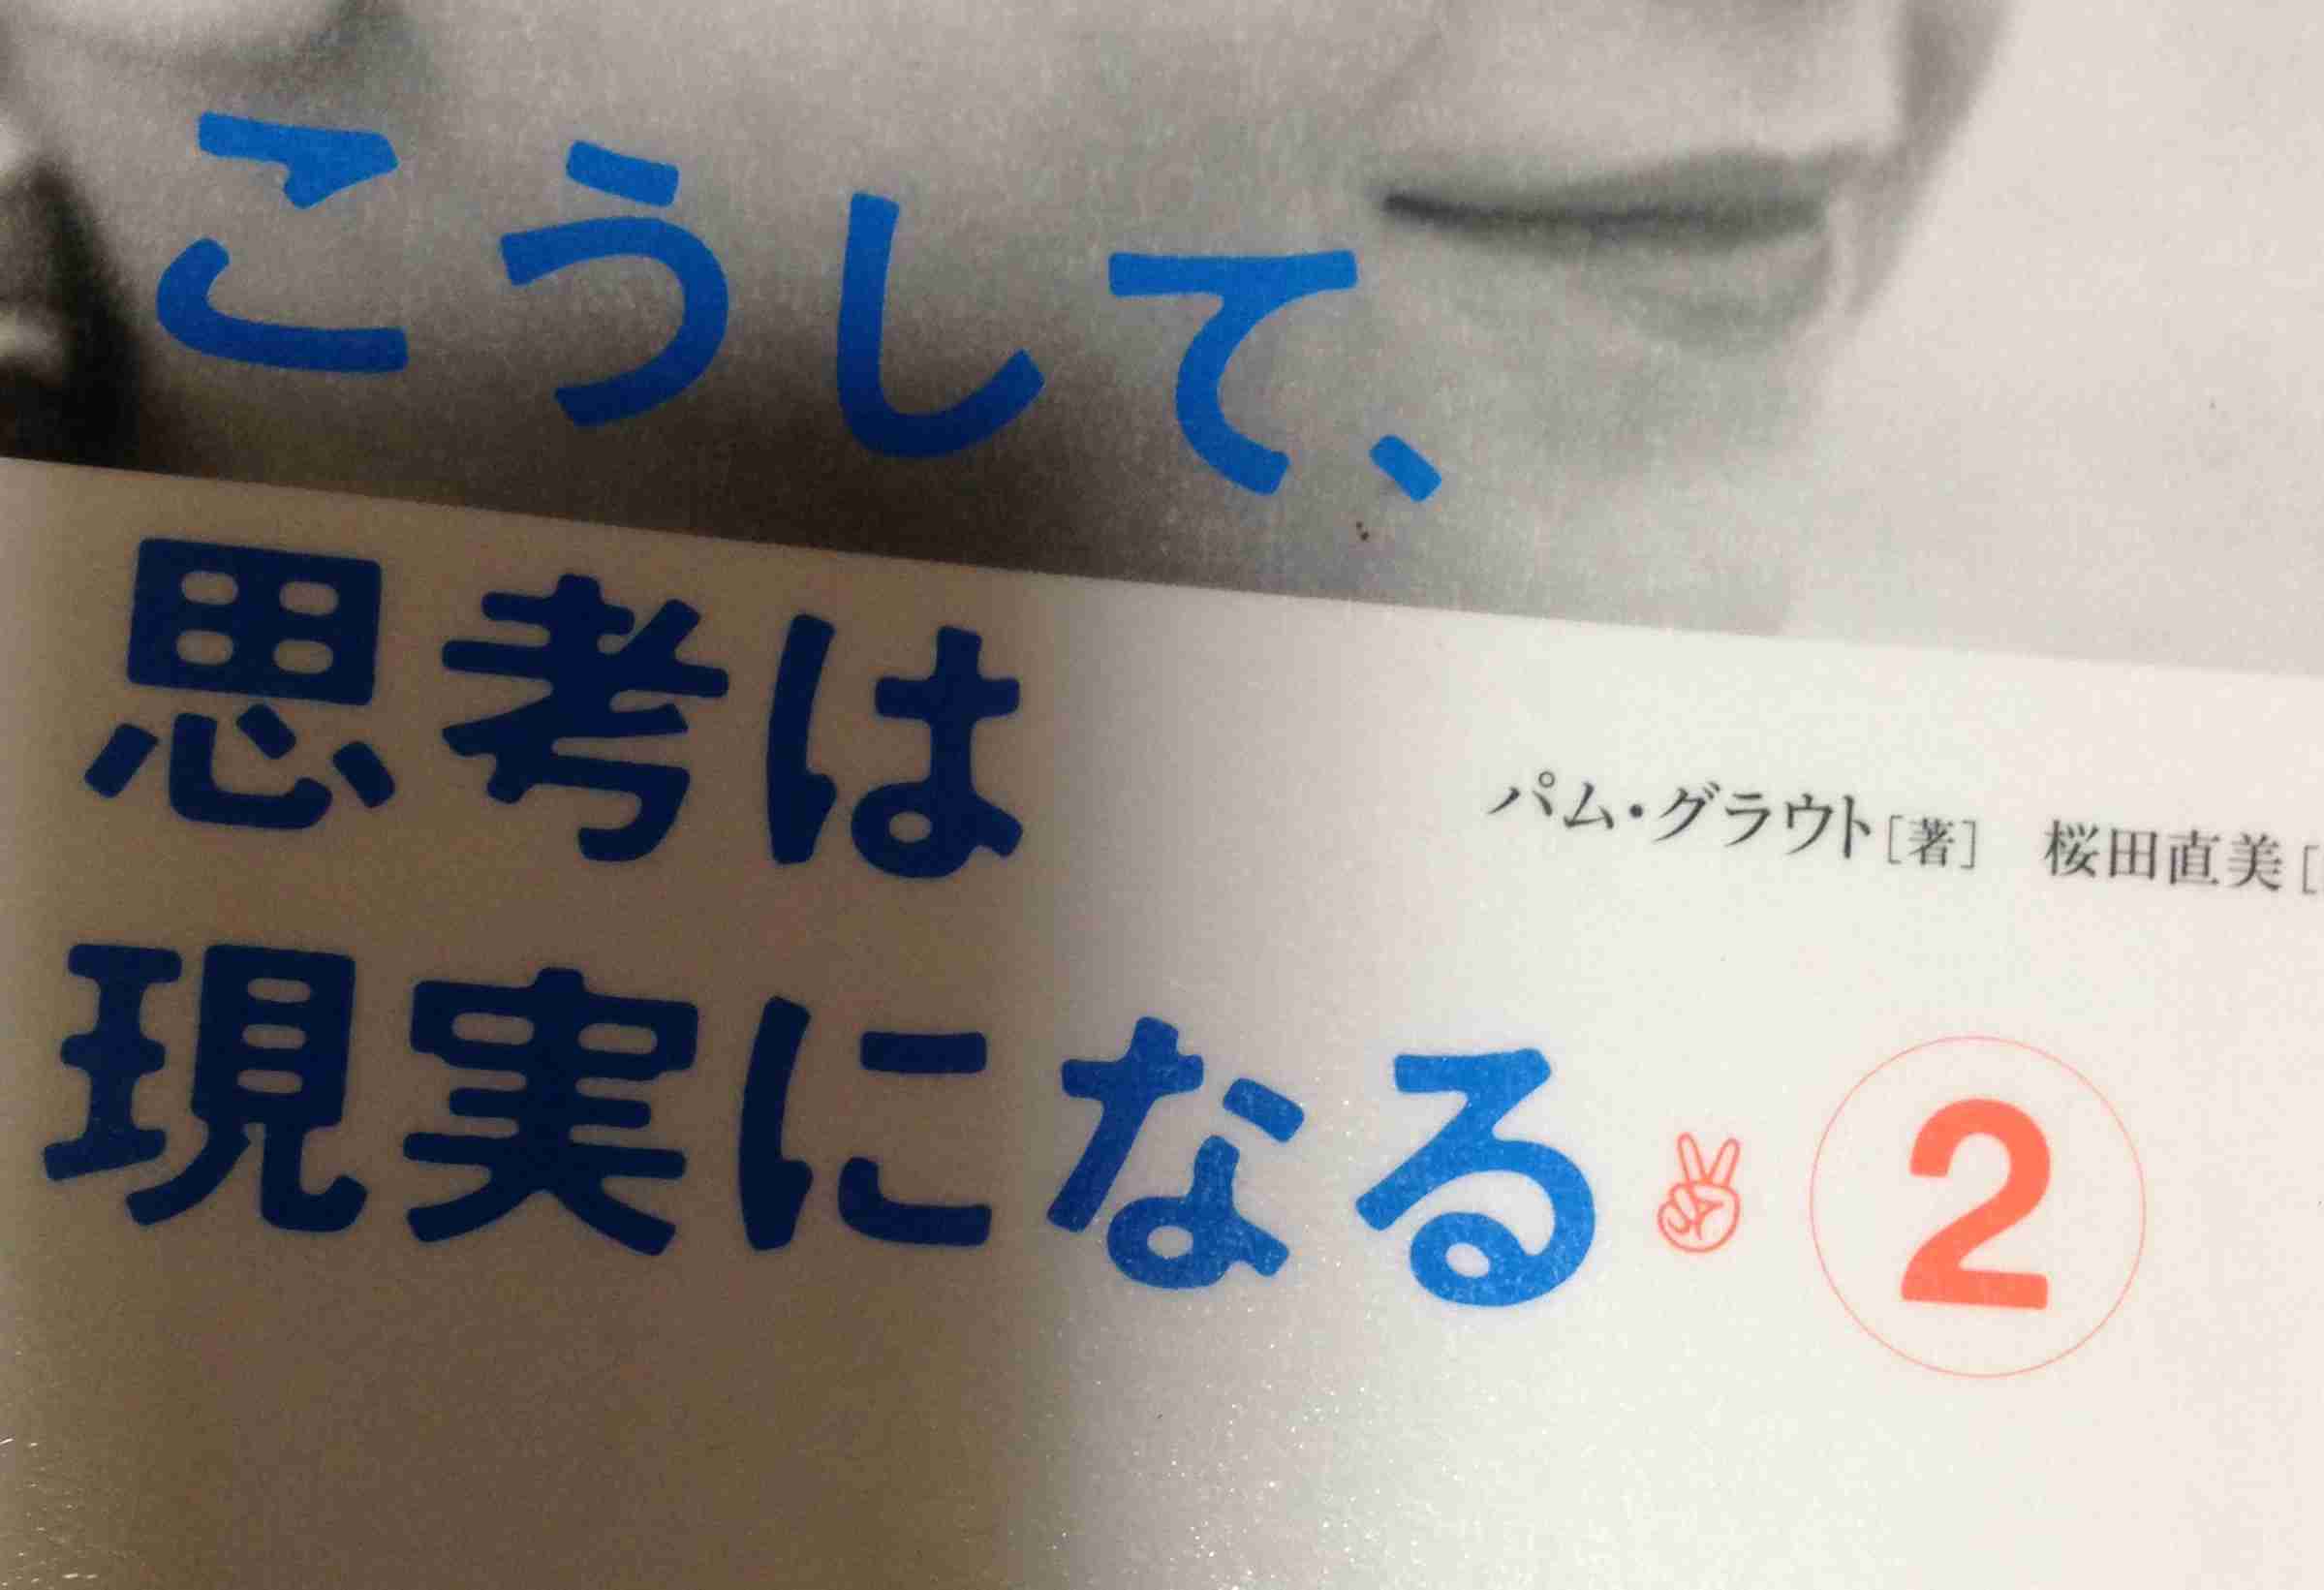 こうして、
思考は
パム・グラウト[著] 桜田直美[
現実になる✌②